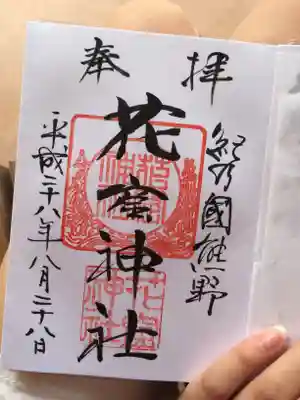 奉拝
紀乃國熊野
花窟神社
平成二十八年八月二十八日